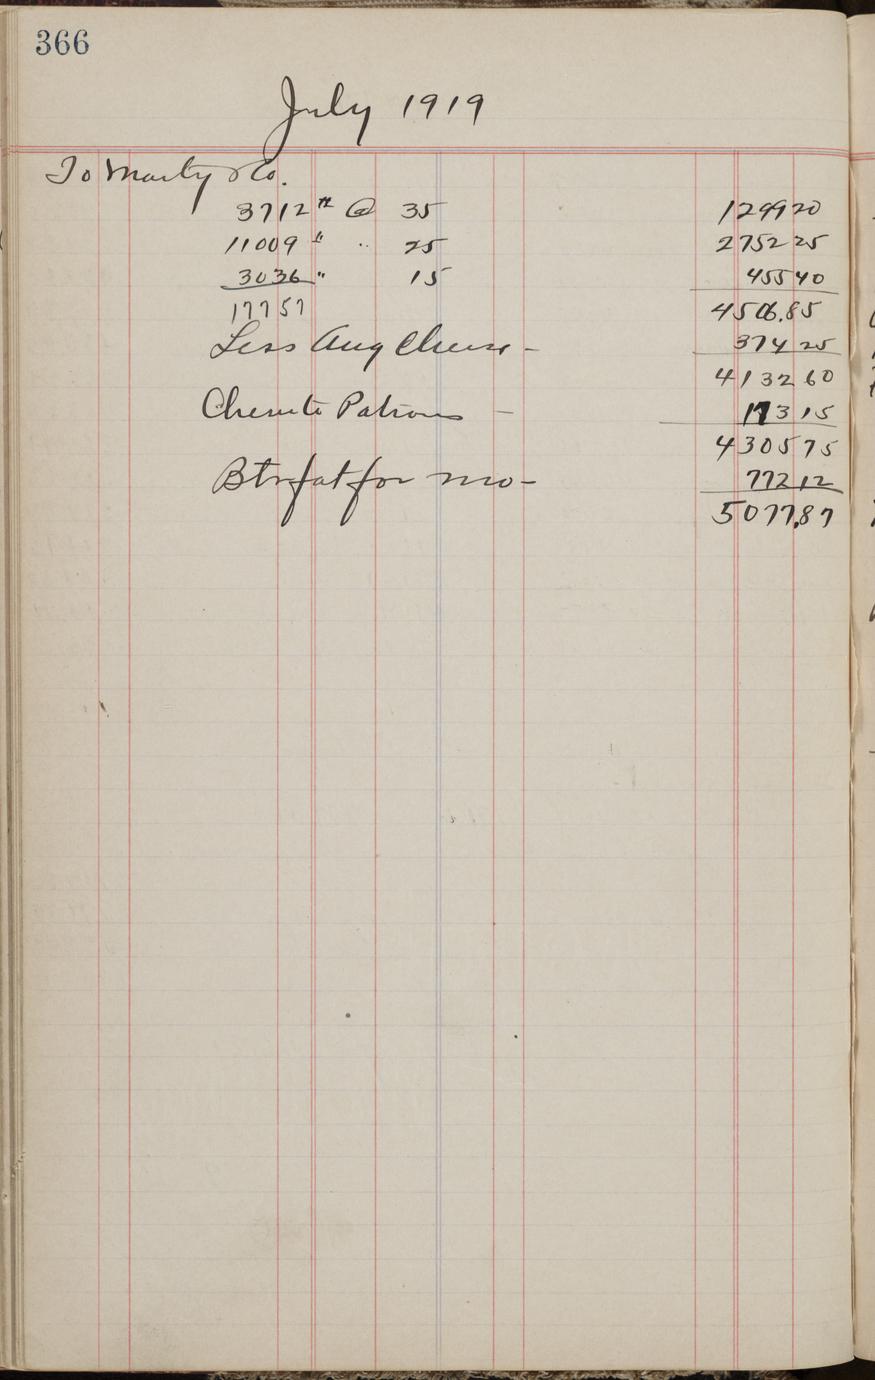 366
July 1919
To Marty & Co.
3712 # @ 35 129920
11009 " " 25 275225
3036 " 15 45540
17757 4506.85
Less Aug Cheese - 37425
413260
Cheese to Patrons - 17315
430575
Btrfat for mo - 77212
5077.87